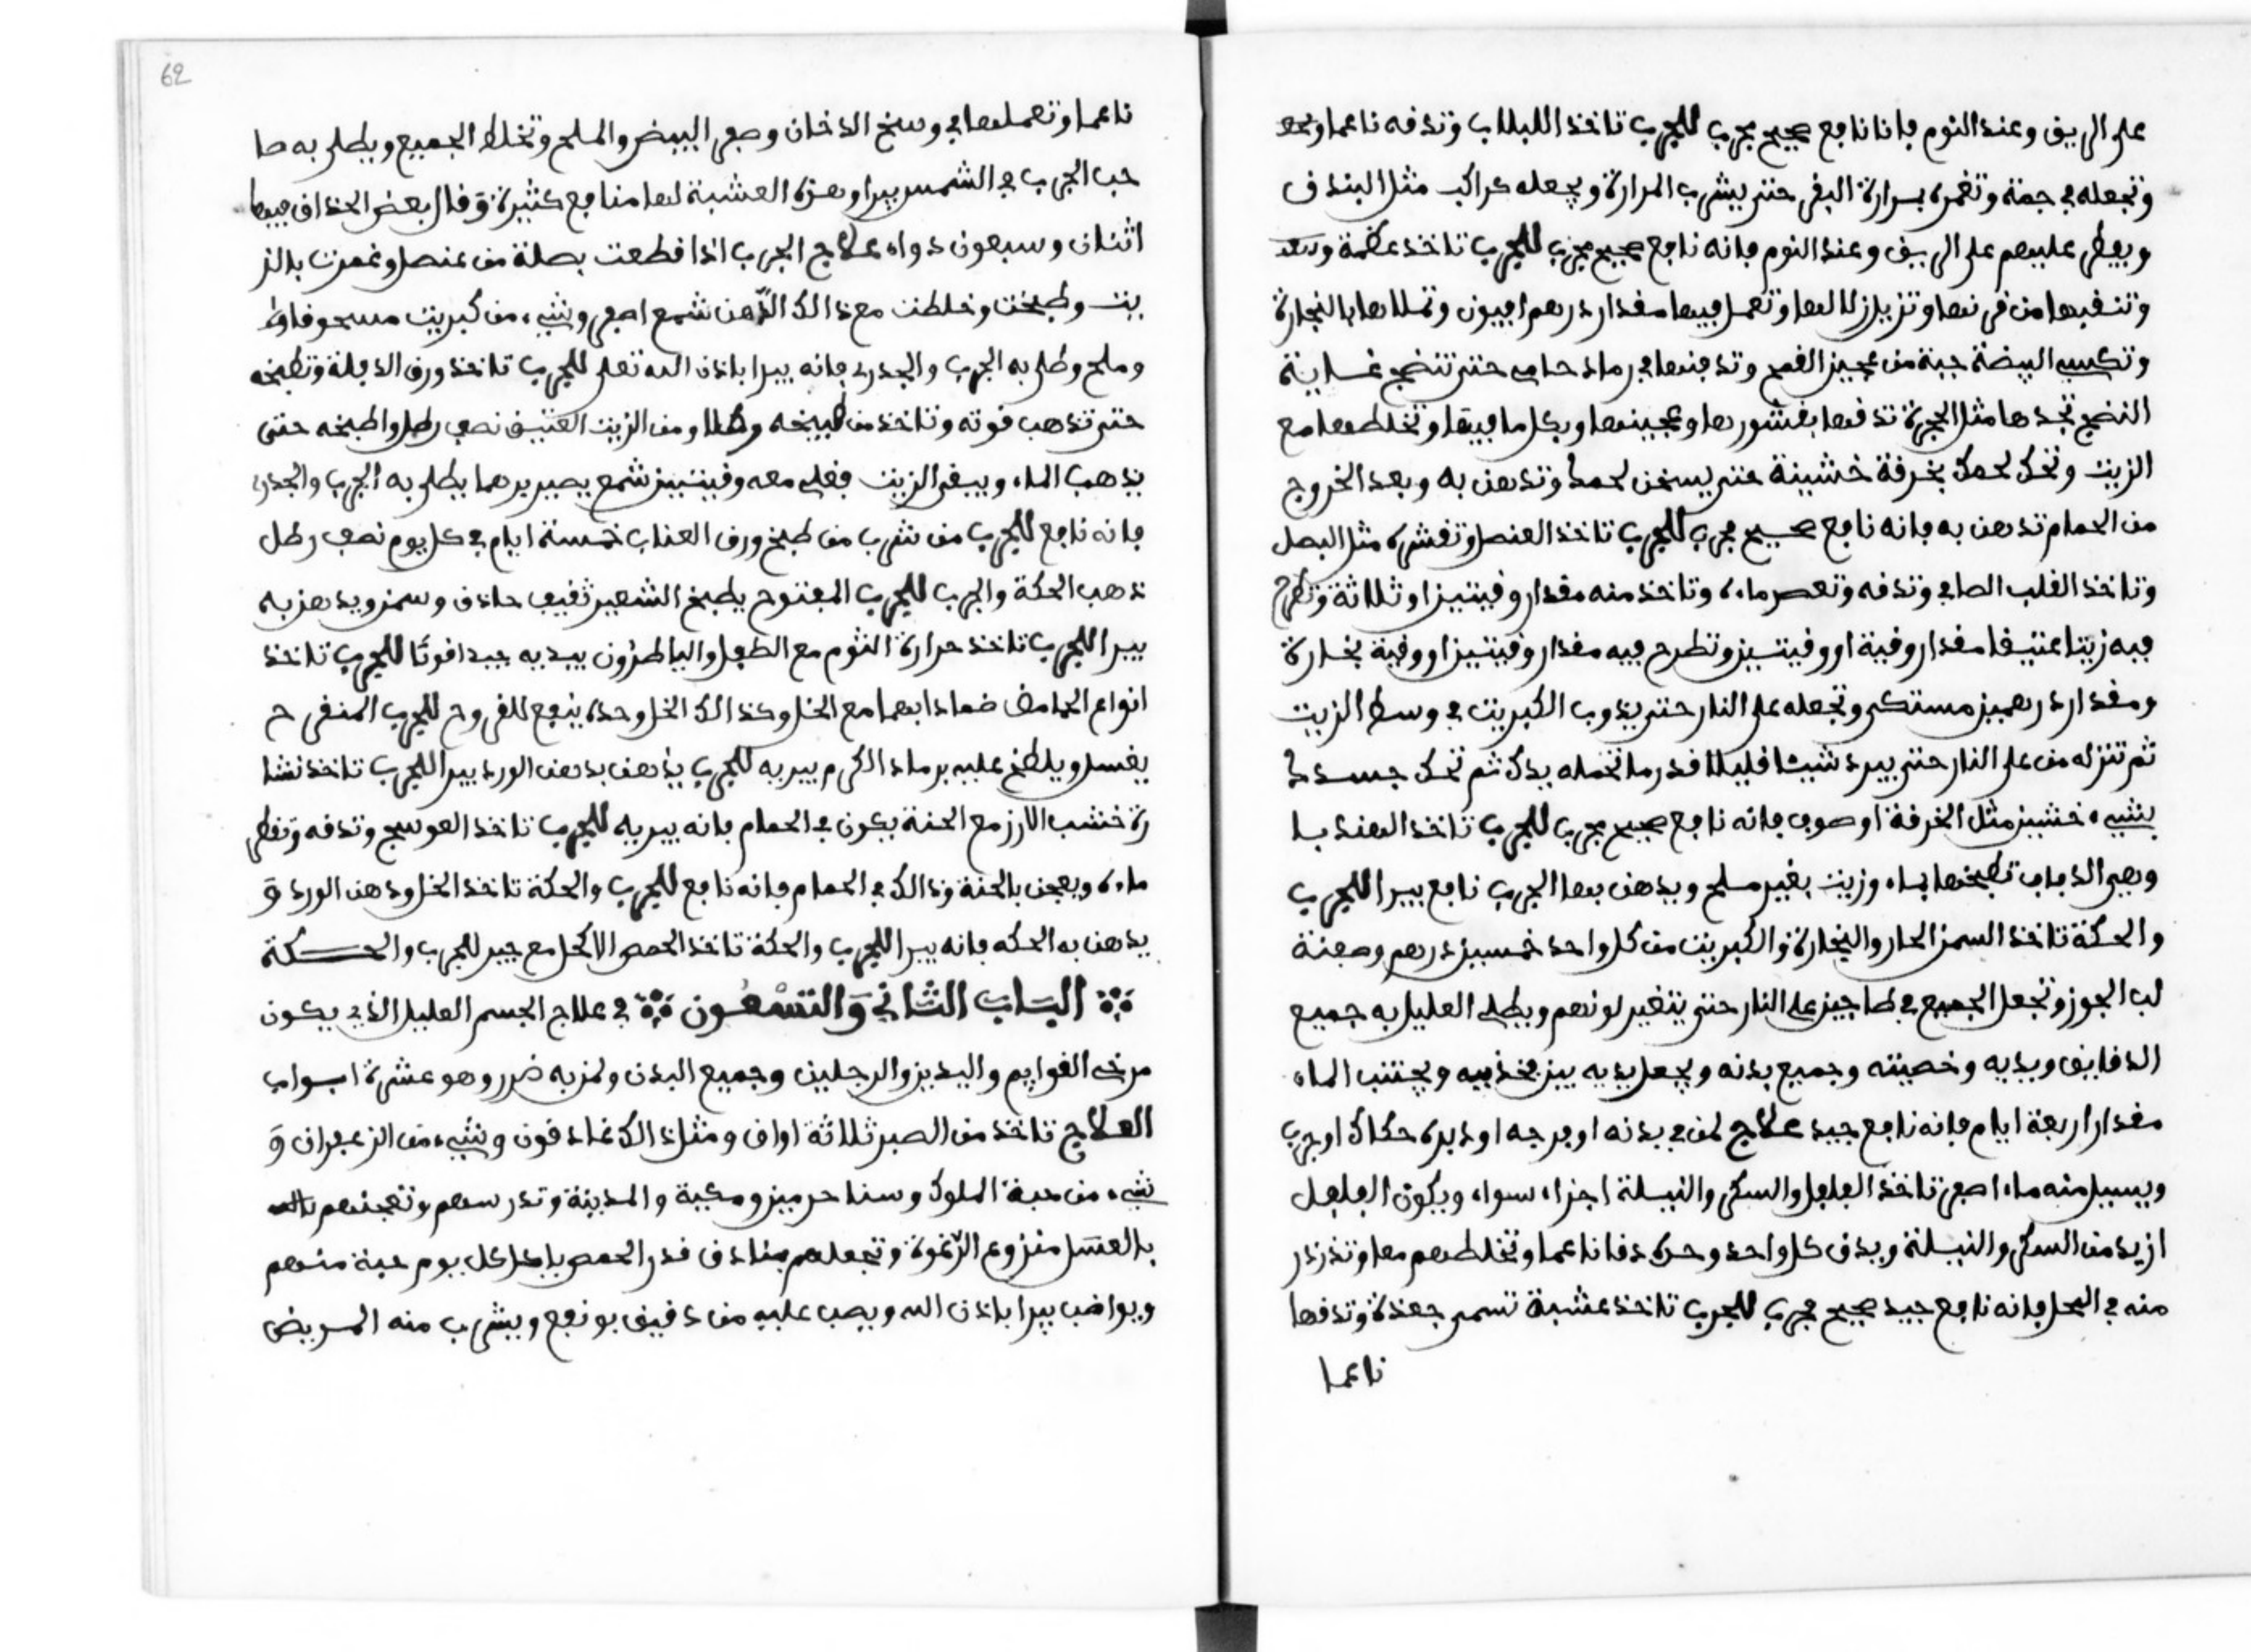 على الريق وعند النوم فانا نافع صحيح مجرب للجرب تاخذ اللبلاب وتدفه ناعما
وتجعله في جمنة وتغمره بمرارة البقر حتى يشرب المرارة ويجعله كراكب مثل البندق
ويعطى عليهم على الريق وعند النوم فانه نافع صحيح مجرب للجرب تاخذ عظمة
وتنقبها من قرنها وتزيل زلالها وتعمل فيها مقدار درهم افيون وتملاها بالنجارة
وتكسي البيضة جبة من عجين القمح وتدفنها في رماد حامي حتى تنضج غاية
النضج تجدها مثل الحجرة تدقها بقشورها وعجينها وبكل ما فيها وتخلطها مع
الزيت وتحك لحمك بخرقة خشينة حتى يسخن لحمك وتدهن به وبعد الخروج
من الحمام تدهن به فانه نافع صحيح مجرب للجرب تاخذ العنصل وتقشره مثل البصل
وتاخذ القلب الصافي وتدقه وتعصر ماءه وتاخذ منه مقدار وقيتين او ثلاثة وتطرح
فيه زيتا عتيقا مقدار وقية او وقيتين وتطرح فيه مقدار وقيتين او وقية بخارة
ومقدار درهمين مستكى وتجعله على النار حتى يذوب الكبريت في وسط الزيت
ثم تنزله من على النار حتى يبرد شيئا قليلا قدر ما تحمله يدك ثم تحك جسدك
بشيء خشين مثل الخرقة او صوف فانه نافع صحيح مجرب للجرب تاخذ الهندبا
وهي الدباب تطبخها بماء وزيت بغير ملح ويدهن بها الجرب نافع يبرا للجرب
والحكة تاخذ السمن الحار والبخارة والكبريت من كل واحد خمسين درهم وحفنة
لب الجوز وتجعل الجميع في طاجين على النار حتى يتغير لونهم ويطلى العليل به جميع
الدقايق ويديه وخصيته وجميع بدنه ويجعل يديه بين فخذيه ويجتنب الماء
مقدار اربعة ايام فانه نافع جيد علاج لمن في بدنه او فرجه او دبره حكاك او جرب
ويسيل منه ماء اصفر تاخذ الفلفل والسكر والنيلة اجزاء سواء ويكون الفلفل
ازيد من السكر والنيلة ويدق كل واحد وحده دقا ناعما وتخلطهم معا وتذرذر
منه في المحل فانه نافع جيد صحيح مجرب للجرب تاخذ عشبة تسمى جعدة وتدقها
ناعما
62
ناعما وتعملها في وسخ الدخان وصفر البيض والملح وتخلط الجميع ويطلى به صا
حب الجرب في الشمس يبرا وهذه العشبة لها منافع كثيرة وقال بعض الحذاق فيها
اثنان وسبعون دواء علاج الجرب اذا قطعت بصلة من عنصل وغمرت بالز
يت وطبخت وخلطت مع ذالك الدهن شمع اصفر وشيء من كبريت مسحوقا
وملح وطلي به الجرب والجدري فانه يبرا باذن الله تعلى للجرب تاخذ ورق الدفلة وتطبخه
حتى تذهب قوته وتاخذ من طبيخه رطلا ومن الزيت العتيق نصف رطل واطبخه حتى
يذهب الماء ويبقى الزيت فقلي معه وقيتين شمع يصير يرهما يطلى به الجرب والجدري
فانه نافع للجرب من شرب من طبخ ورق العناب خمسة ايام في كل يوم نصف رطل
تذهب الحكة والجرب للجرب المفتوح يطبخ الشعير ثقيف حاذق وسمن ويدهن به
يبرا للجرب تاخذ حرارة الثوم مع الطفل والباطرون يبديه جيد اقوتا للجرب تاخذ
انواع الحامض ضمادا بهما مع الخل وكذالك الخل وحده ينفع للقروح للجرب المتقرح
يغسل ويلطخ عليه برماد الكرم يبريه للجرب يدهن بدهن الورد يبرا للجرب تاخذ نشا
رة خشب الارز مع الحنة يكون في الحمام فانه يبريه للجرب تاخذ العوسج وتدقه وتقطر
ماءه ويعجن بالحنة وذالك في الحمام فانه نافع للجرب والحكة تاخذ الخل ودهن الورد و
يدهن به الحكه فانه يبرا للجرب والحكة تاخذ الحمص الاكحل مع جير للجرب والحكة
الباب الثاني والتسعون في علاج الجسم العليل الذي يكون
مرخي القوايم واليدين والرجلين وجميع البدن ولمن به ضرر وهو عشرة ابواب
العلاج تاخذ من الصبر ثلاثة اواق ومثل ذالك غادقون وشيء من الزعفران و
شيء من حبة الملوك وسنا حرمين ومكية والمدينة وتدرسهم وتعجنهم
بالعسل منزوع الرغوة وتجعلهم بنادق قدر الحمص ياكل كل يوم حبة منهم
ويواضب يبرا باذن الله ويصب عليه من دقيق بونفع ويشرب منه المريض